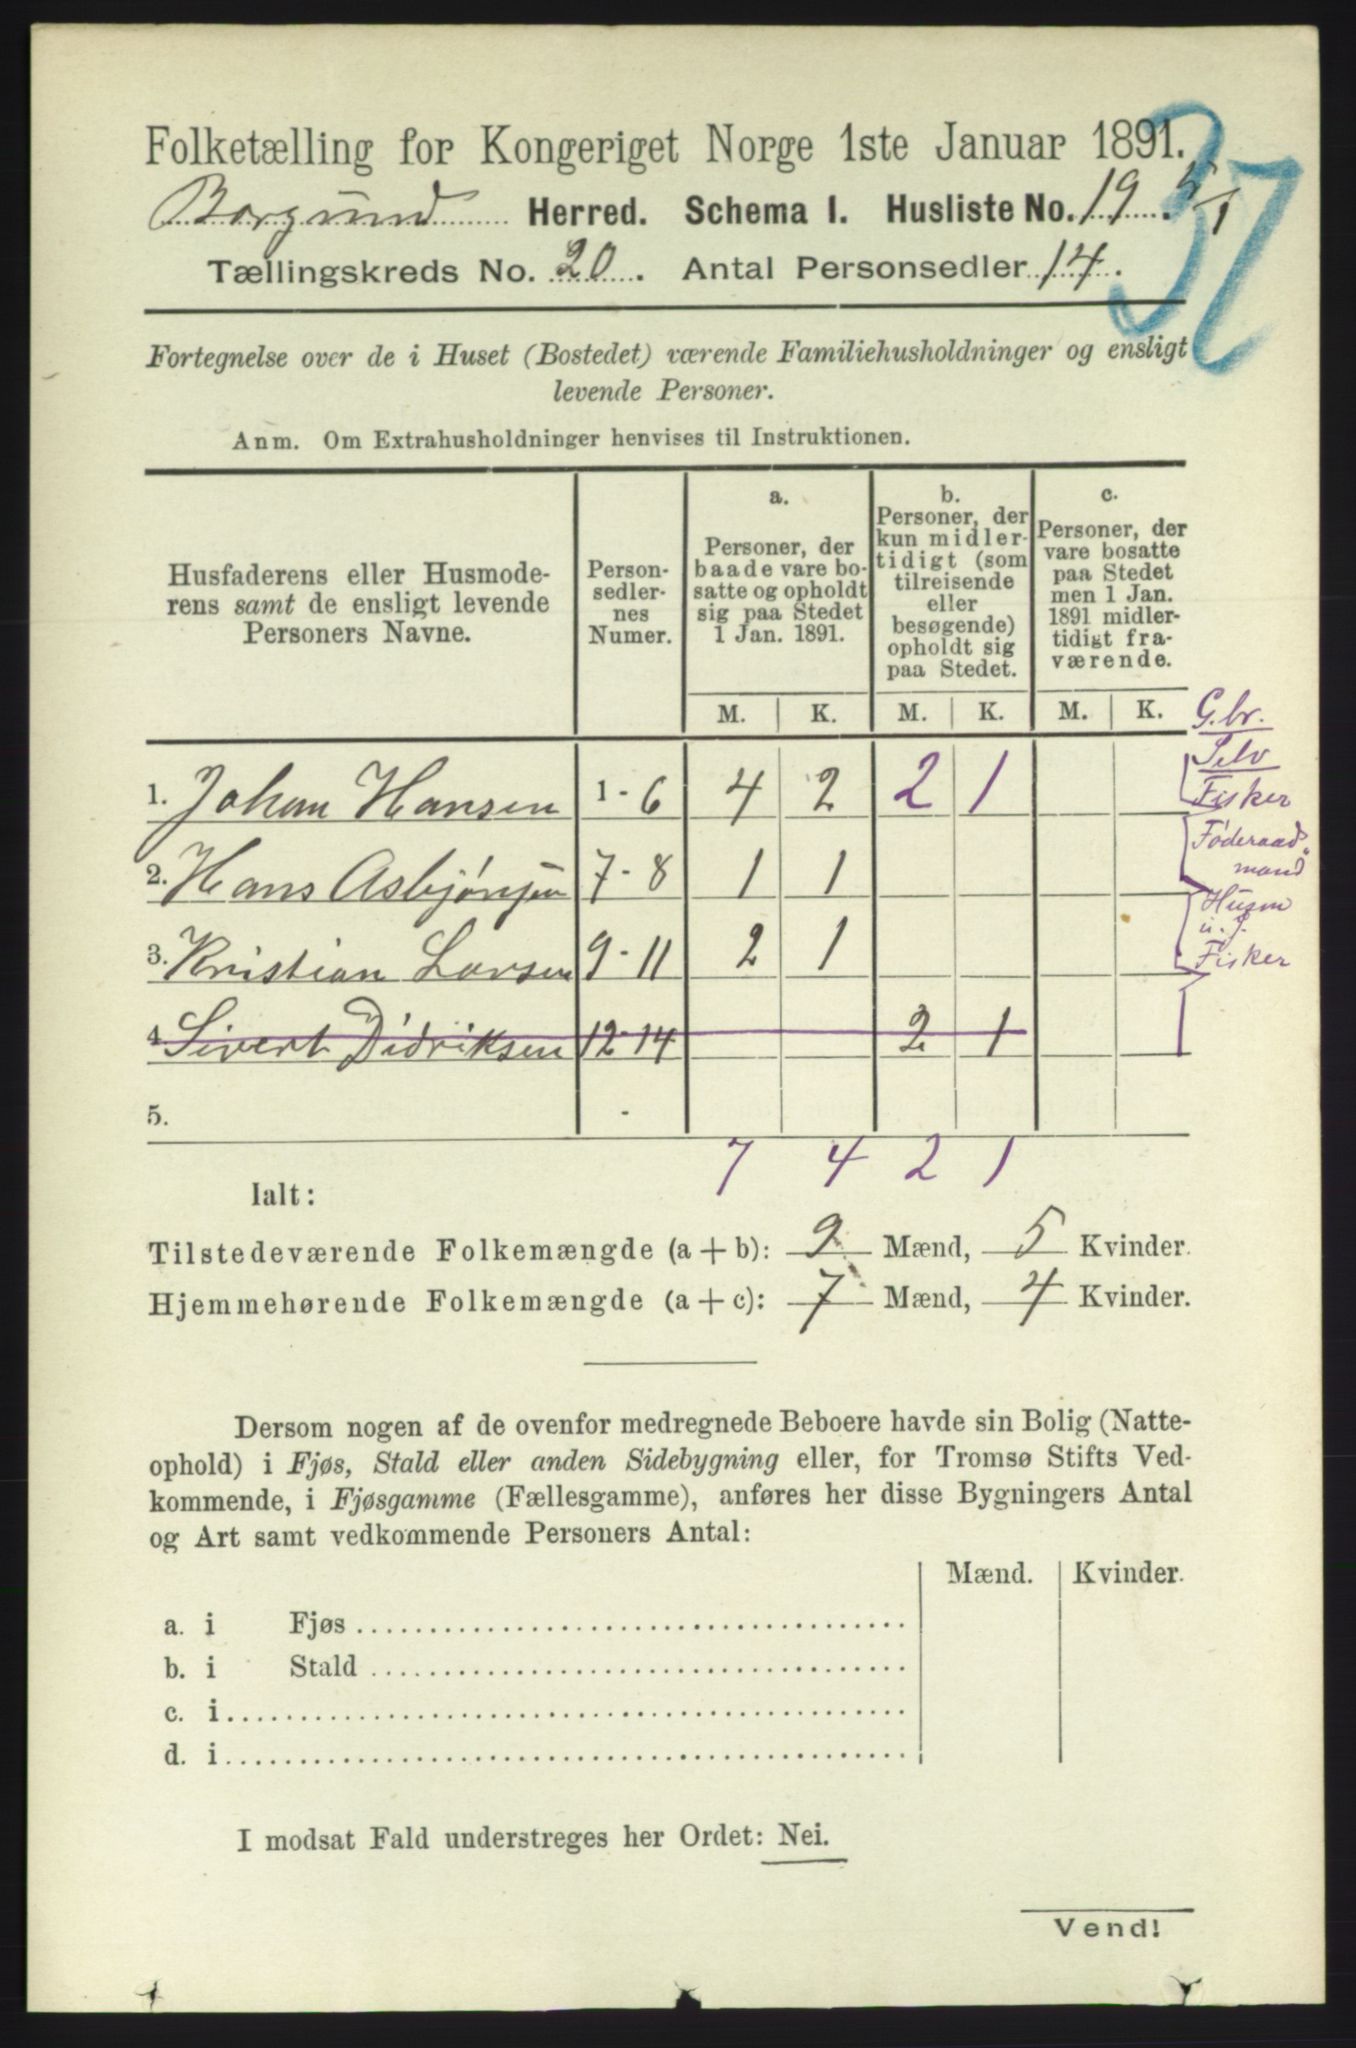 Folketælling for Kongeriget Norge 1ste Januar 1891.
Borgund Herred. Schema I. Husliste No. 19. 5/1
37
Tællingskreds No. 20. Antal Personsedler 14.
Fortegnelse over de i Huset (Bostedet) værende Familiehusholdninger og ensligt
levende Personer.
Anm. Om Extrahusholdninger henvises til Instruktionen.
Husfaderens eller Husmode-
rens samt de ensligt levende
Personers Navne.
Person-
sedler-
nes
Numer.
a.
Personer, der
baade vare bo-
satte og opholdt
sig paa Stedet
1 Jan. 1891.
b.
Personer, der
kun midler-
tidigt (som
tilreisende
eller
besøgende)
opholdt sig
paa Stedet.
c.
Personer, der
vare bosatte
paa Stedet
men 1 Jan.
1891 midler-
tidigt fra-
værende.
M. K. M. K. M. K. G.br.
Selv
1. Johan Hansen 1 - 6 4 2 2 1 Fisker
Føderaads
mand
2. Hans Asbjørnsen 7 - 8 1 1
Husm
u. J.
3. Kristian Larsen 9 - 11 2 1 Fisker
4. Sivert Didriksen 12 - 14 2 1
5. -
7 4 2 1
Ialt:
Tilstedeværende Folkemængde (a + b): 9 Mænd, 5 Kvinder.
Hjemmehørende Folkemængde (a + c): 7 Mænd, 4 Kvinder.
Dersom nogen af de ovenfor medregnede Beboere havde sin Bolig (Natte-
ophold) i Fjøs, Stald eller anden Sidebygning eller, for Tromsø Stifts Ved-
kommende, i Fjøsgamme (Fællesgamme), anføres her disse Bygningers Antal
og Art samt vedkommende Personers Antal:
Mænd. Kvinder.
a. i Fjøs
b. i Stald
c. i
d. i
I modsat Fald understreges her Ordet: Nei.
Vend!